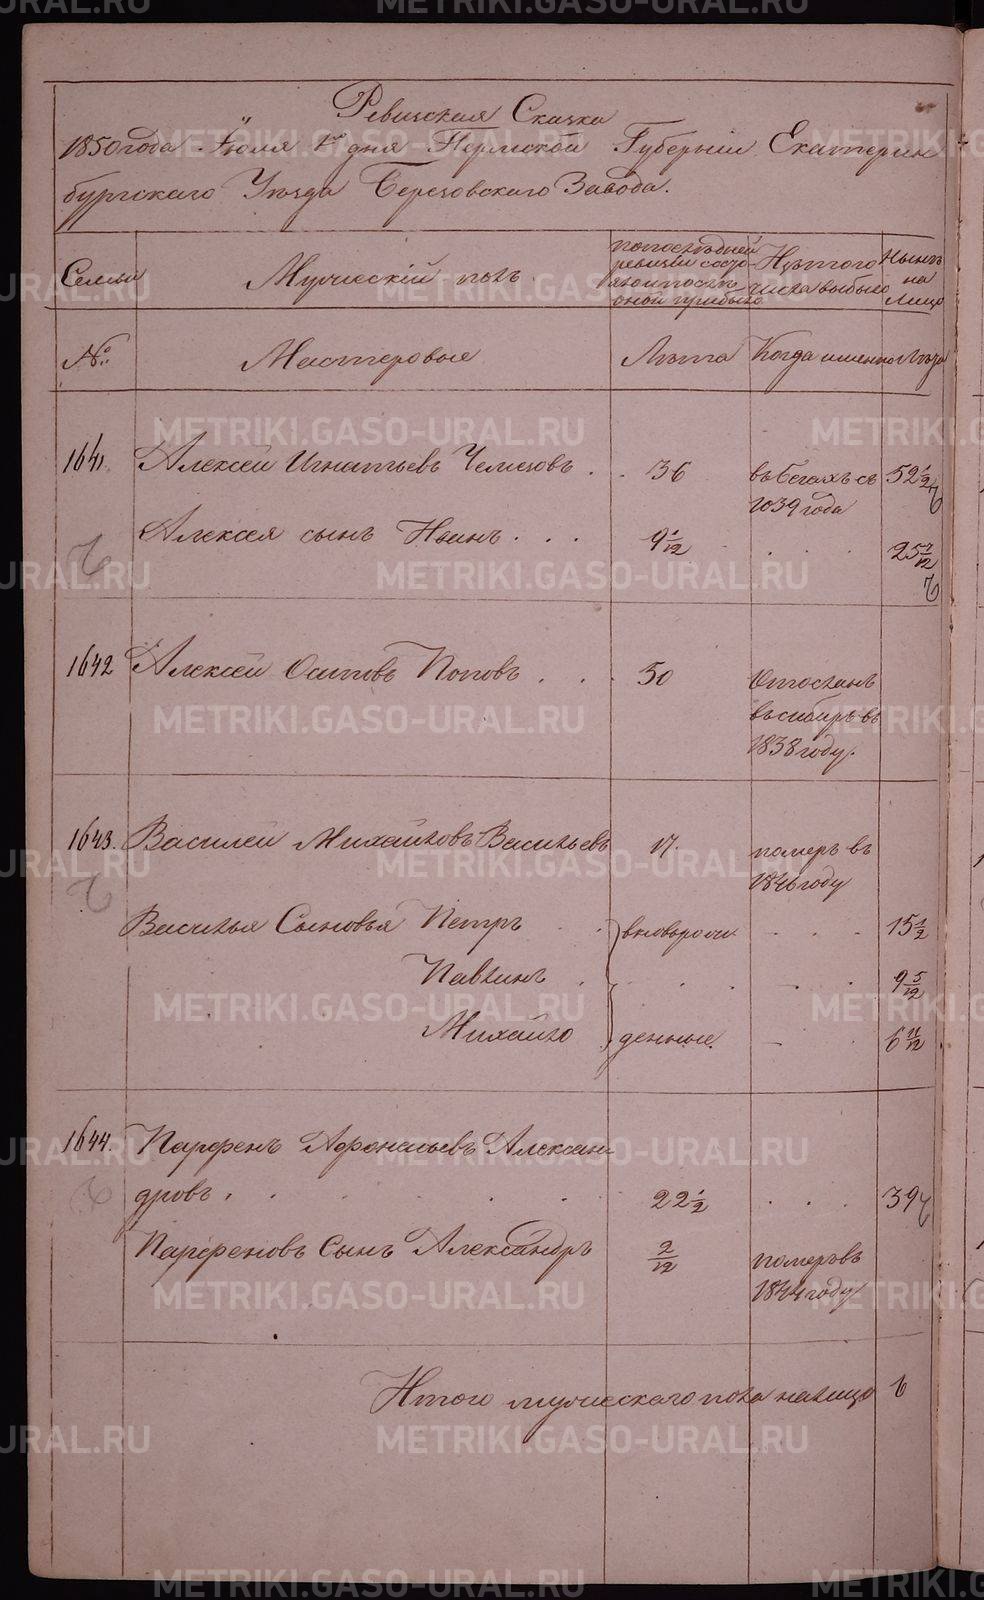 Ревижская Скаска
1850 года Іюля 1 дня Пермской Губерніи Екатерин
бургскаго Уѣзда Березовскаго Завода.
Семьи
Мужескій полъ
По последней ревизіи состояло и после оной прибыло
Изъ того числа выбыло
Нынѣ на лицо
№:
Мастеровые
Лѣта
Когда именно
Лѣта
1641. Алексей Игнатьевъ Чемезовъ . . 36 въ бегахъ съ 1839 года 52 1/2
Алексея сынъ Иванъ . . . 9 1/12 . . . 25 7/12
1642 Алексей Осиповъ Поповъ . . . 50 Отосланъ
въ сибирь въ
1838 году.
1643. Василей Михайловъ Васильевъ 17. померъ въ
1846 году
Василья Сыновья Петръ . . вновьрож . . . 15 1/2
Павлинъ . . . . . 9 5/12
Михайло денные. 6 11/12
1644. Парфенъ Афонасьевъ Алексан-
дровъ . . . . . . 22 1/2 . . . 39
Парфеновъ Сынъ Александръ 2/12 померъ въ
1844 году
Итого мужескаго пола на лицо 6
METRIKI.GASO-URAL.RU